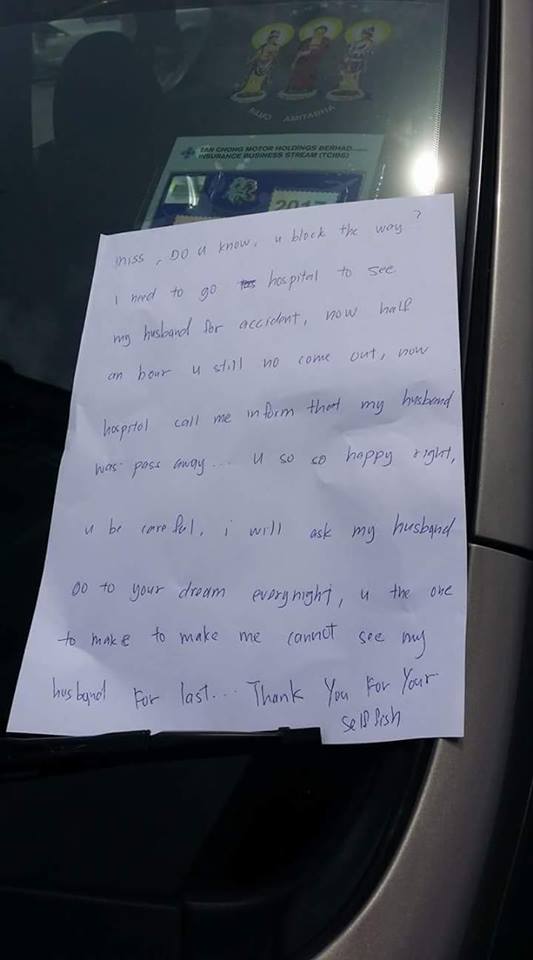 BUJO AMITABHA
TAN CHONG MOTOR HOLDINGS BERHAD
INSURANCE BUSINESS STREAM (TCIBS)
2017
miss, DO u know, u block the way?
i need to go hospital to see
my husband for accident, now half
an hour u still no come out, now
hospital call me inform that my husband
was pass away... u so so happy right,
u be careful, i will ask my husband
go to your dream everynight, u the one
to make to make me cannot see my
husband For last... Thank You For Your
selfish